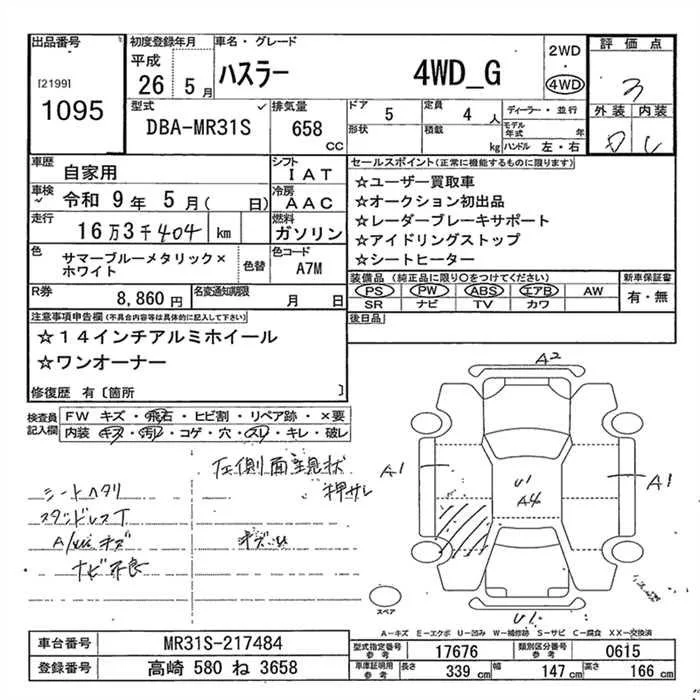 出品番号
[2199]
1095
初度登録年月
平成
26 5月
車名・グレード
ハスラー 4WD_G
2WD
・
4WD
評価点
3
外装 内装
型式
DBA-MR31S
排気量
658
CC
ドア 5
形状
定員 4人
積載 kg
ディーラー・並行
モデル年式 年
ハンドル 左・右
車歴
自家用
シフト
IAT
車検
令和9年5月( 日)
冷房
AAC
走行
16万3千404 km
燃料
ガソリン
色
サマーブルーメタリック×
ホワイト
色替
色コード
A7M
R券
8,860円
名変通知期限
月 日
セールスポイント(正常に機能するものに限ります)
☆ユーザー買取車
☆オークション初出品
☆レーダーブレーキサポート
☆アイドリングストップ
☆シートヒーター
装備品 (純正品に限り○をつけてください)
PS PW ABS エアB AW
SR ナビ TV カワ
新車保証書
有・無
後日品
注意事項申告欄(不具合内容等は具体的に記入して下さい)
☆14インチアルミホイール
☆ワンオーナー
修復歴 有〔箇所 〕
検査員
記入欄
FW キズ・飛石・ヒビ割・リペア跡・×要
内装 キズ・汚レ・コゲ・穴・スレ・キレ・破レ
左側面主現状
押サレ
シートヘタリ
キズ
ナビ不良
A2
A1
A1
U1
A4
U1
スペア
A-キズ E-エクボ U-凹み W-補修跡 S-サビ C-腐食 XX-交換済
車台番号
MR31S-217484
登録番号
高崎 580 ね 3658
型式指定番号
参考
17676
類別区分番号
参考
0615
車庫証明用
参考
長さ 339 cm
幅 147 cm
高さ 166 cm